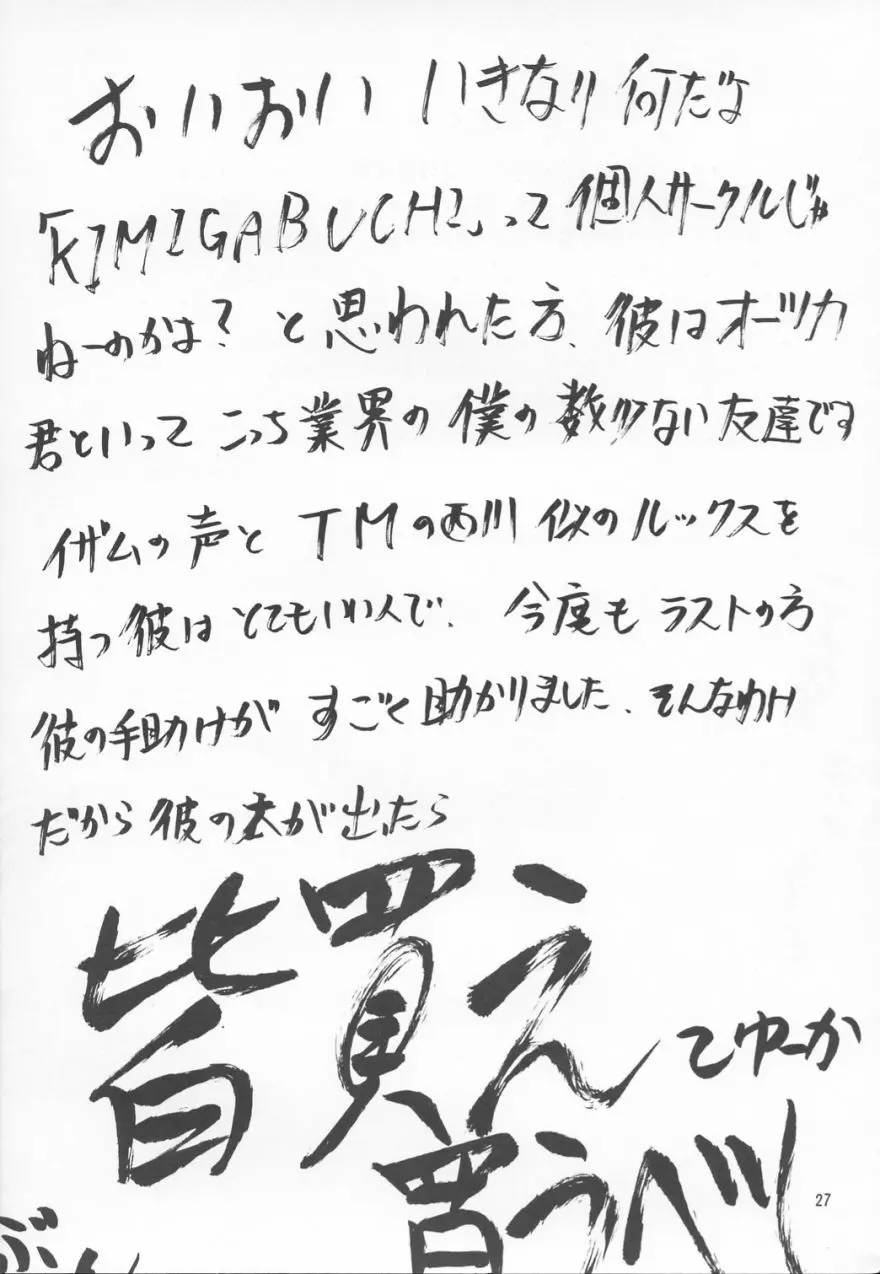 おいおい いきなり何だよ
「KIMIGABUCHI」って個人サークルじゃ
ねーのかよ？と思われた方、彼はオーツカ
君といってこっち業界の僕の数少ない友達です
イザムの声とTMの西川似のルックスを
持つ彼はとてもいい人で、今度もラストの方
彼の手助けがすごく助かりました、そんなわけ
だから彼の本が出たら
皆買え
てゆーか
買うべし
27